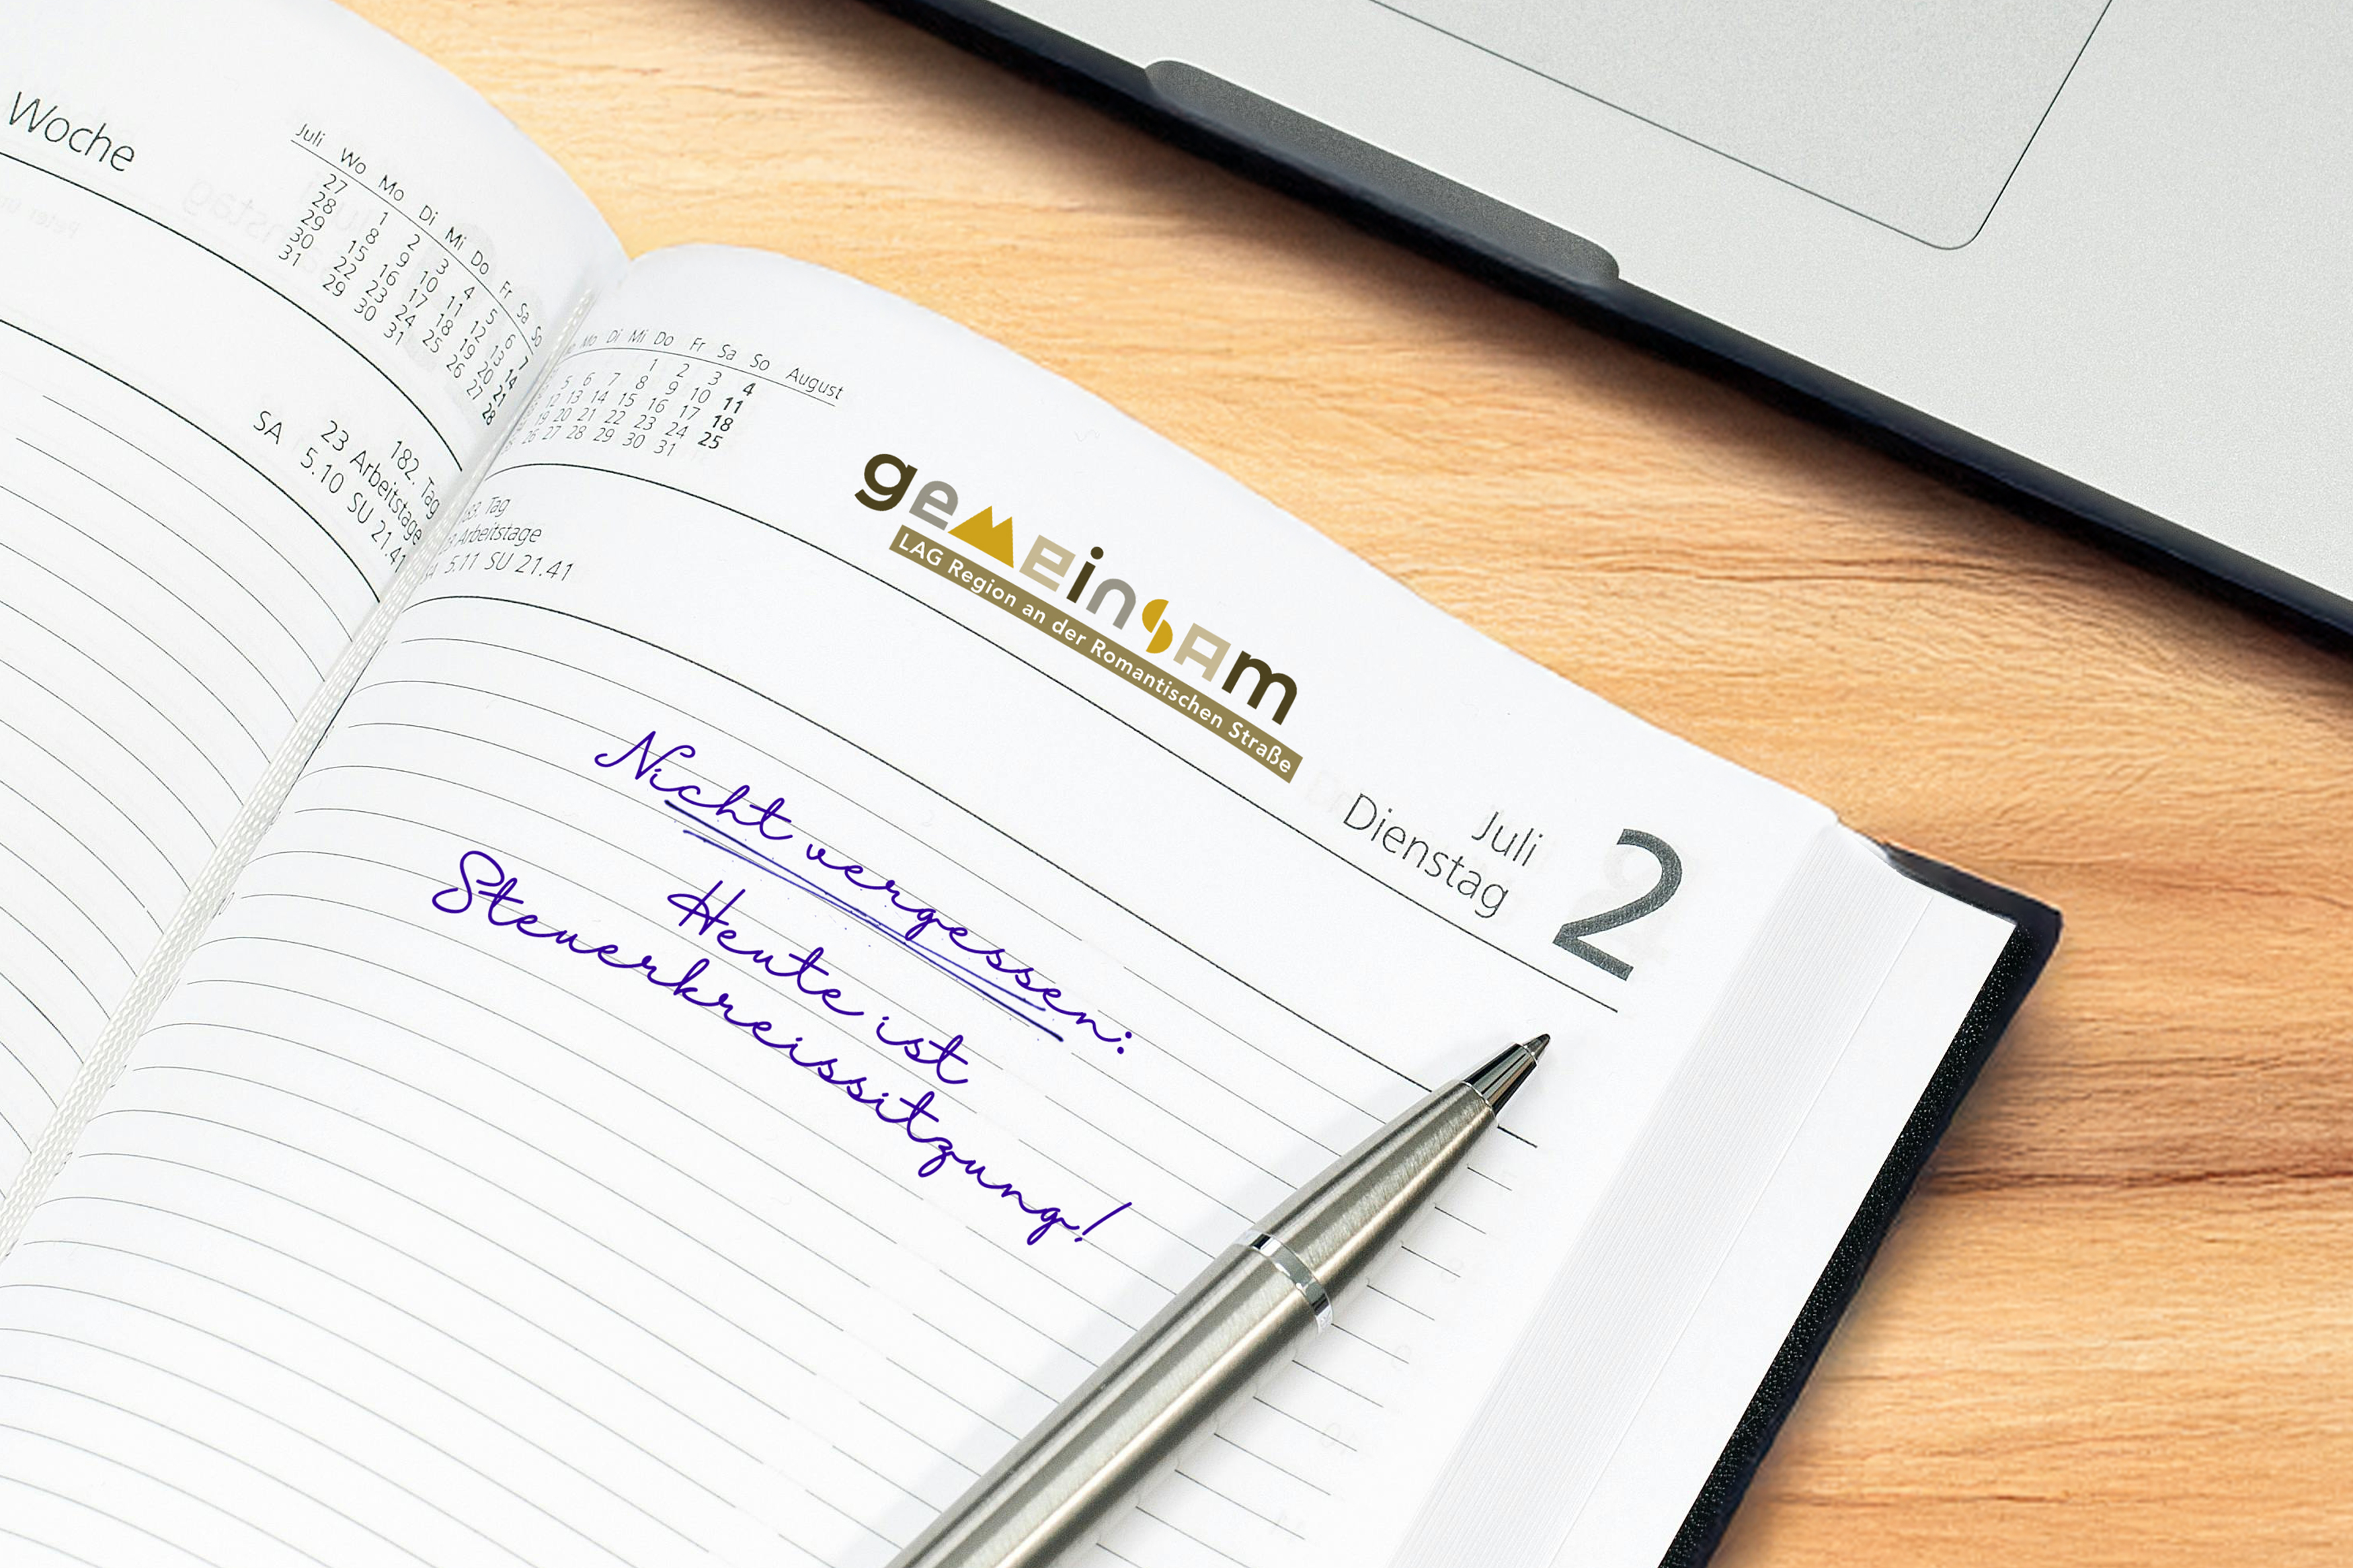 Woche
Juli Wo Mo Di Mi Do Fr Sa So
27 1 2 3 4 5 6 7
28 8 9 10 11 12 13 14
29 15 16 17 18 19 20 21
30 22 23 24 25 26 27 28
31 29 30 31
182. Tag
23 Arbeitstage
SA 5.10 SU 21.41
Mo Di Mi Do Fr Sa So August
1 2 3 4
5 6 7 8 9 10 11
12 13 14 15 16 17 18
19 20 21 22 23 24 25
26 27 28 29 30 31
Tag
Arbeitstage
5.11 SU 21.41
gemeinsam
LAG Region an der Romantischen Straße
Juli
Dienstag
2
Nicht vergessen:
Heute ist
Steuerkreissitzung!